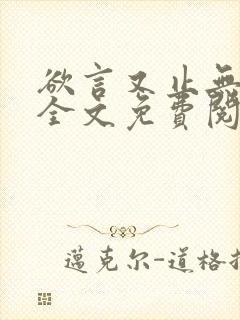 欲言又止無
全文免費閱
邁克尔-道格拉